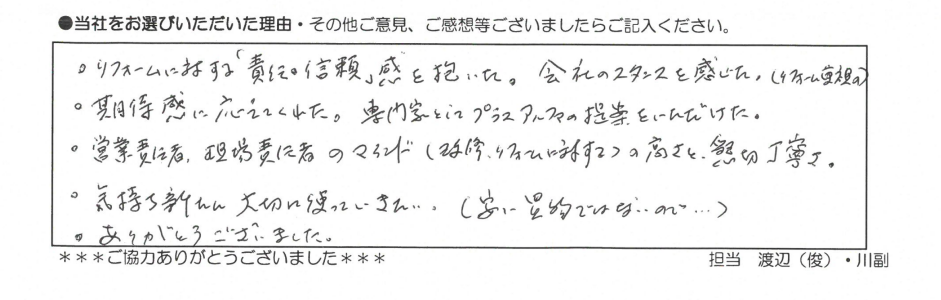 ●当社をお選びいただいた理由・その他ご意見、ご感想等ございましたらご記入ください。
○リフォームに対する「責任・信頼」感を抱いた。会社のスタンスを感じた。(リフォーム重視の)
○期待感に応えてくれた。専門家としてプラスアルファの提案をいただけた。
○営業責任者、現場責任者のマインド(改修、リフォームに対する)の高さと、懇切丁寧さ。
○気持ち新たに大切に使っていきたい。(安い買物ではないので…)
○ありがとうございました。
＊＊＊ご協力ありがとうございました＊＊＊
担当 渡辺（俊）・川副